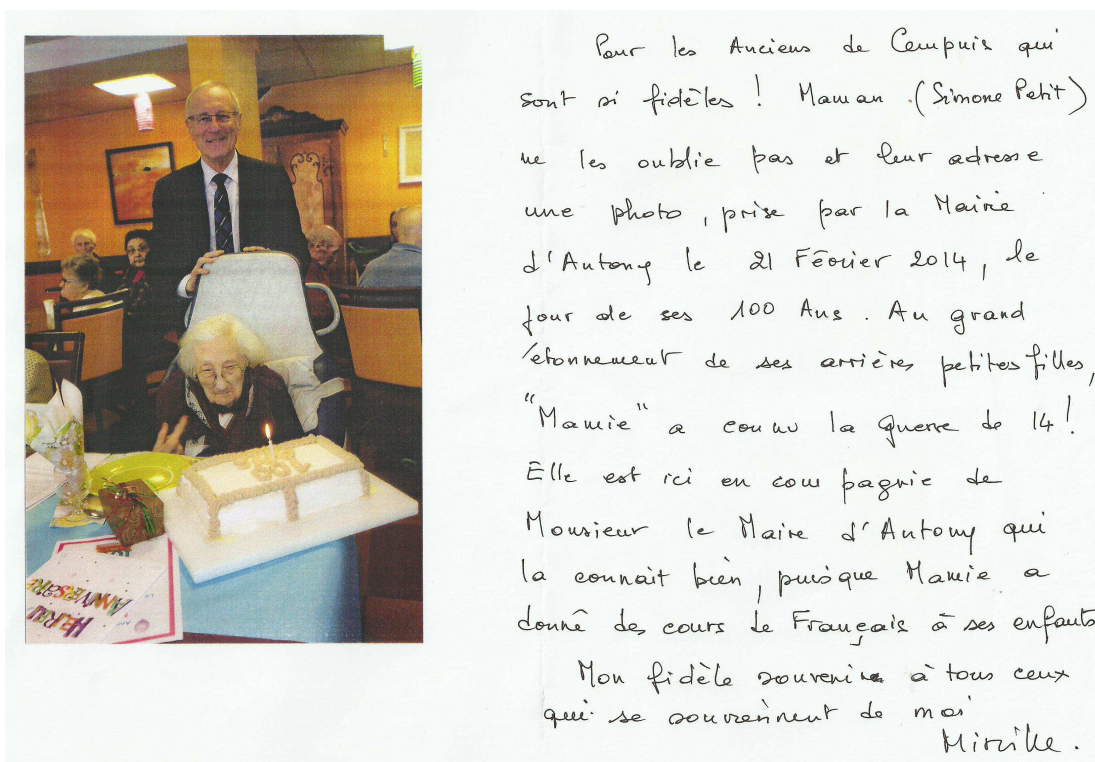 Pour les Anciens de Cempuis qui
sont si fidèles ! Maman (Simone Petit)
ne les oublie pas et leur adresse
une photo, prise par la Mairie
d'Antony le 21 Février 2014, le
jour de ses 100 Ans. Au grand
étonnement de ses arrières petites filles,
"Mamie" a connu la guerre de 14 !
Elle est ici en compagnie de
Monsieur le Maire d'Antony qui
la connait bien, puisque Mamie a
donné des cours de Français à ses enfants
Mon fidèle souvenir à tous ceux
qui se souviennent de moi
Mireille.
HEUREUX
ANNIVERSAIRE